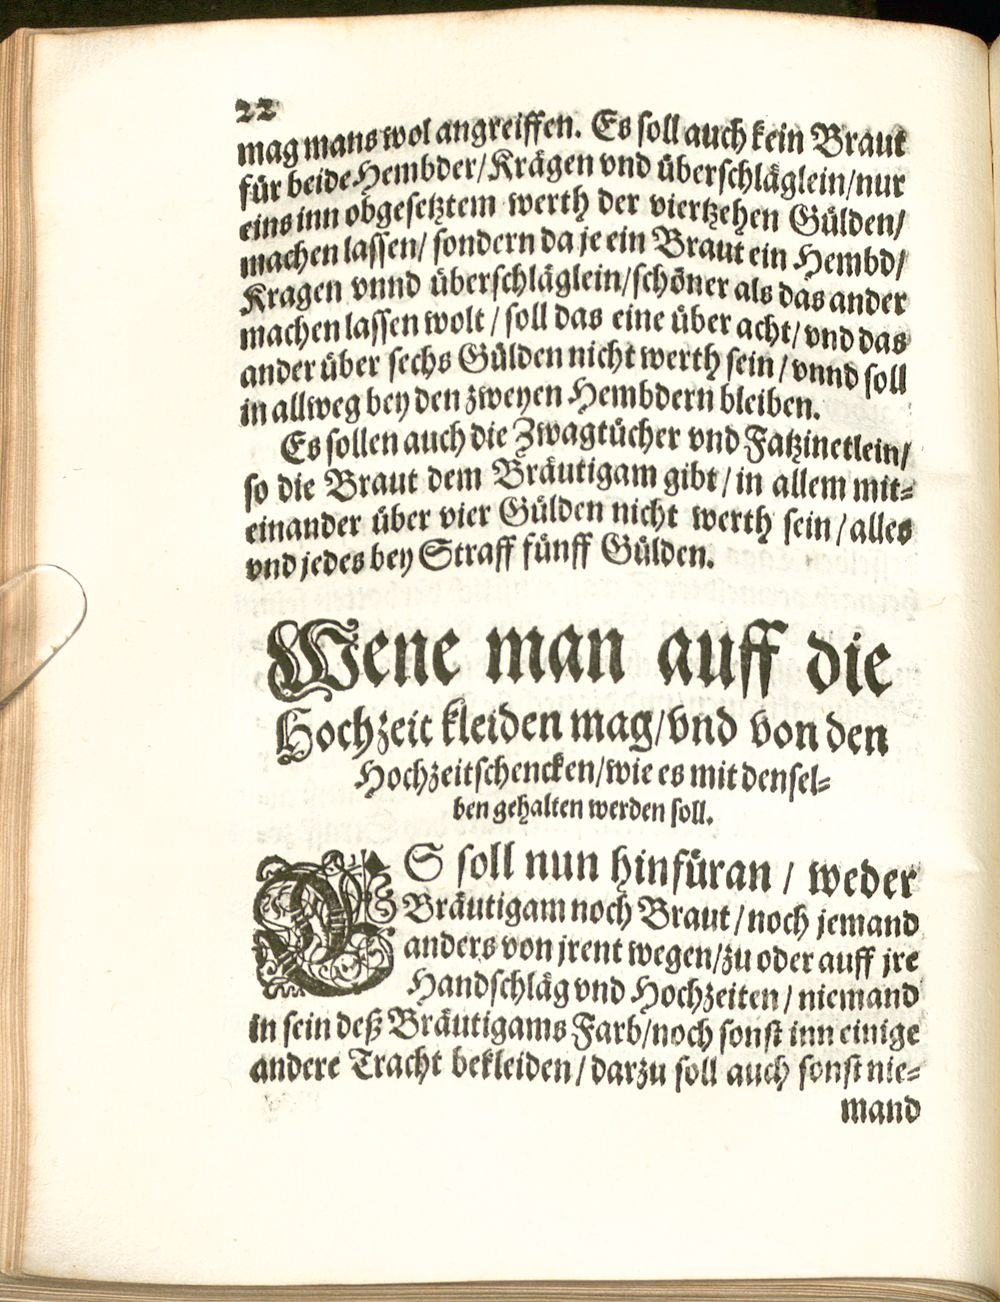 22
mag mans wol angreiffen. Es soll auch kein Braut
für beide Hembder/Krägen vnd überschläglein/nur
eins inn obgesetztem werth der viertzehen Gülden/
machen lassen/ sondern da je ein Braut ein Hembd/
Kragen vnnd überschläglein/schöner als das ander
machen lassen wolt / soll das eine über acht/ vnd das
ander über sechs Gülden nicht werth sein / vnnd soll
in allweg bey den zweyen Hembdern bleiben.
Es sollen auch die Zwagtücher vnd Fatzinetlein/
so die Braut dem Bräutigam gibt / in allem mit-
einander über vier Gülden nicht werth sein / alles
vnd jedes bey Straff fünff Gülden.
Wene man auff die
Hochzeit kleiden mag/vnd von den
Hochzeitschencken/wie es mit densel-
ben gehalten werden soll.
ES soll nun hinfüran / weder
Bräutigam noch Braut / noch jemand
anders von jrent wegen/zu oder auff jre
Handschläg vnd Hochzeiten / niemand
in sein deß Bräutigams Farb/noch sonst inn einige
andere Tracht bekleiden / darzu soll auch sonst nie-
mand